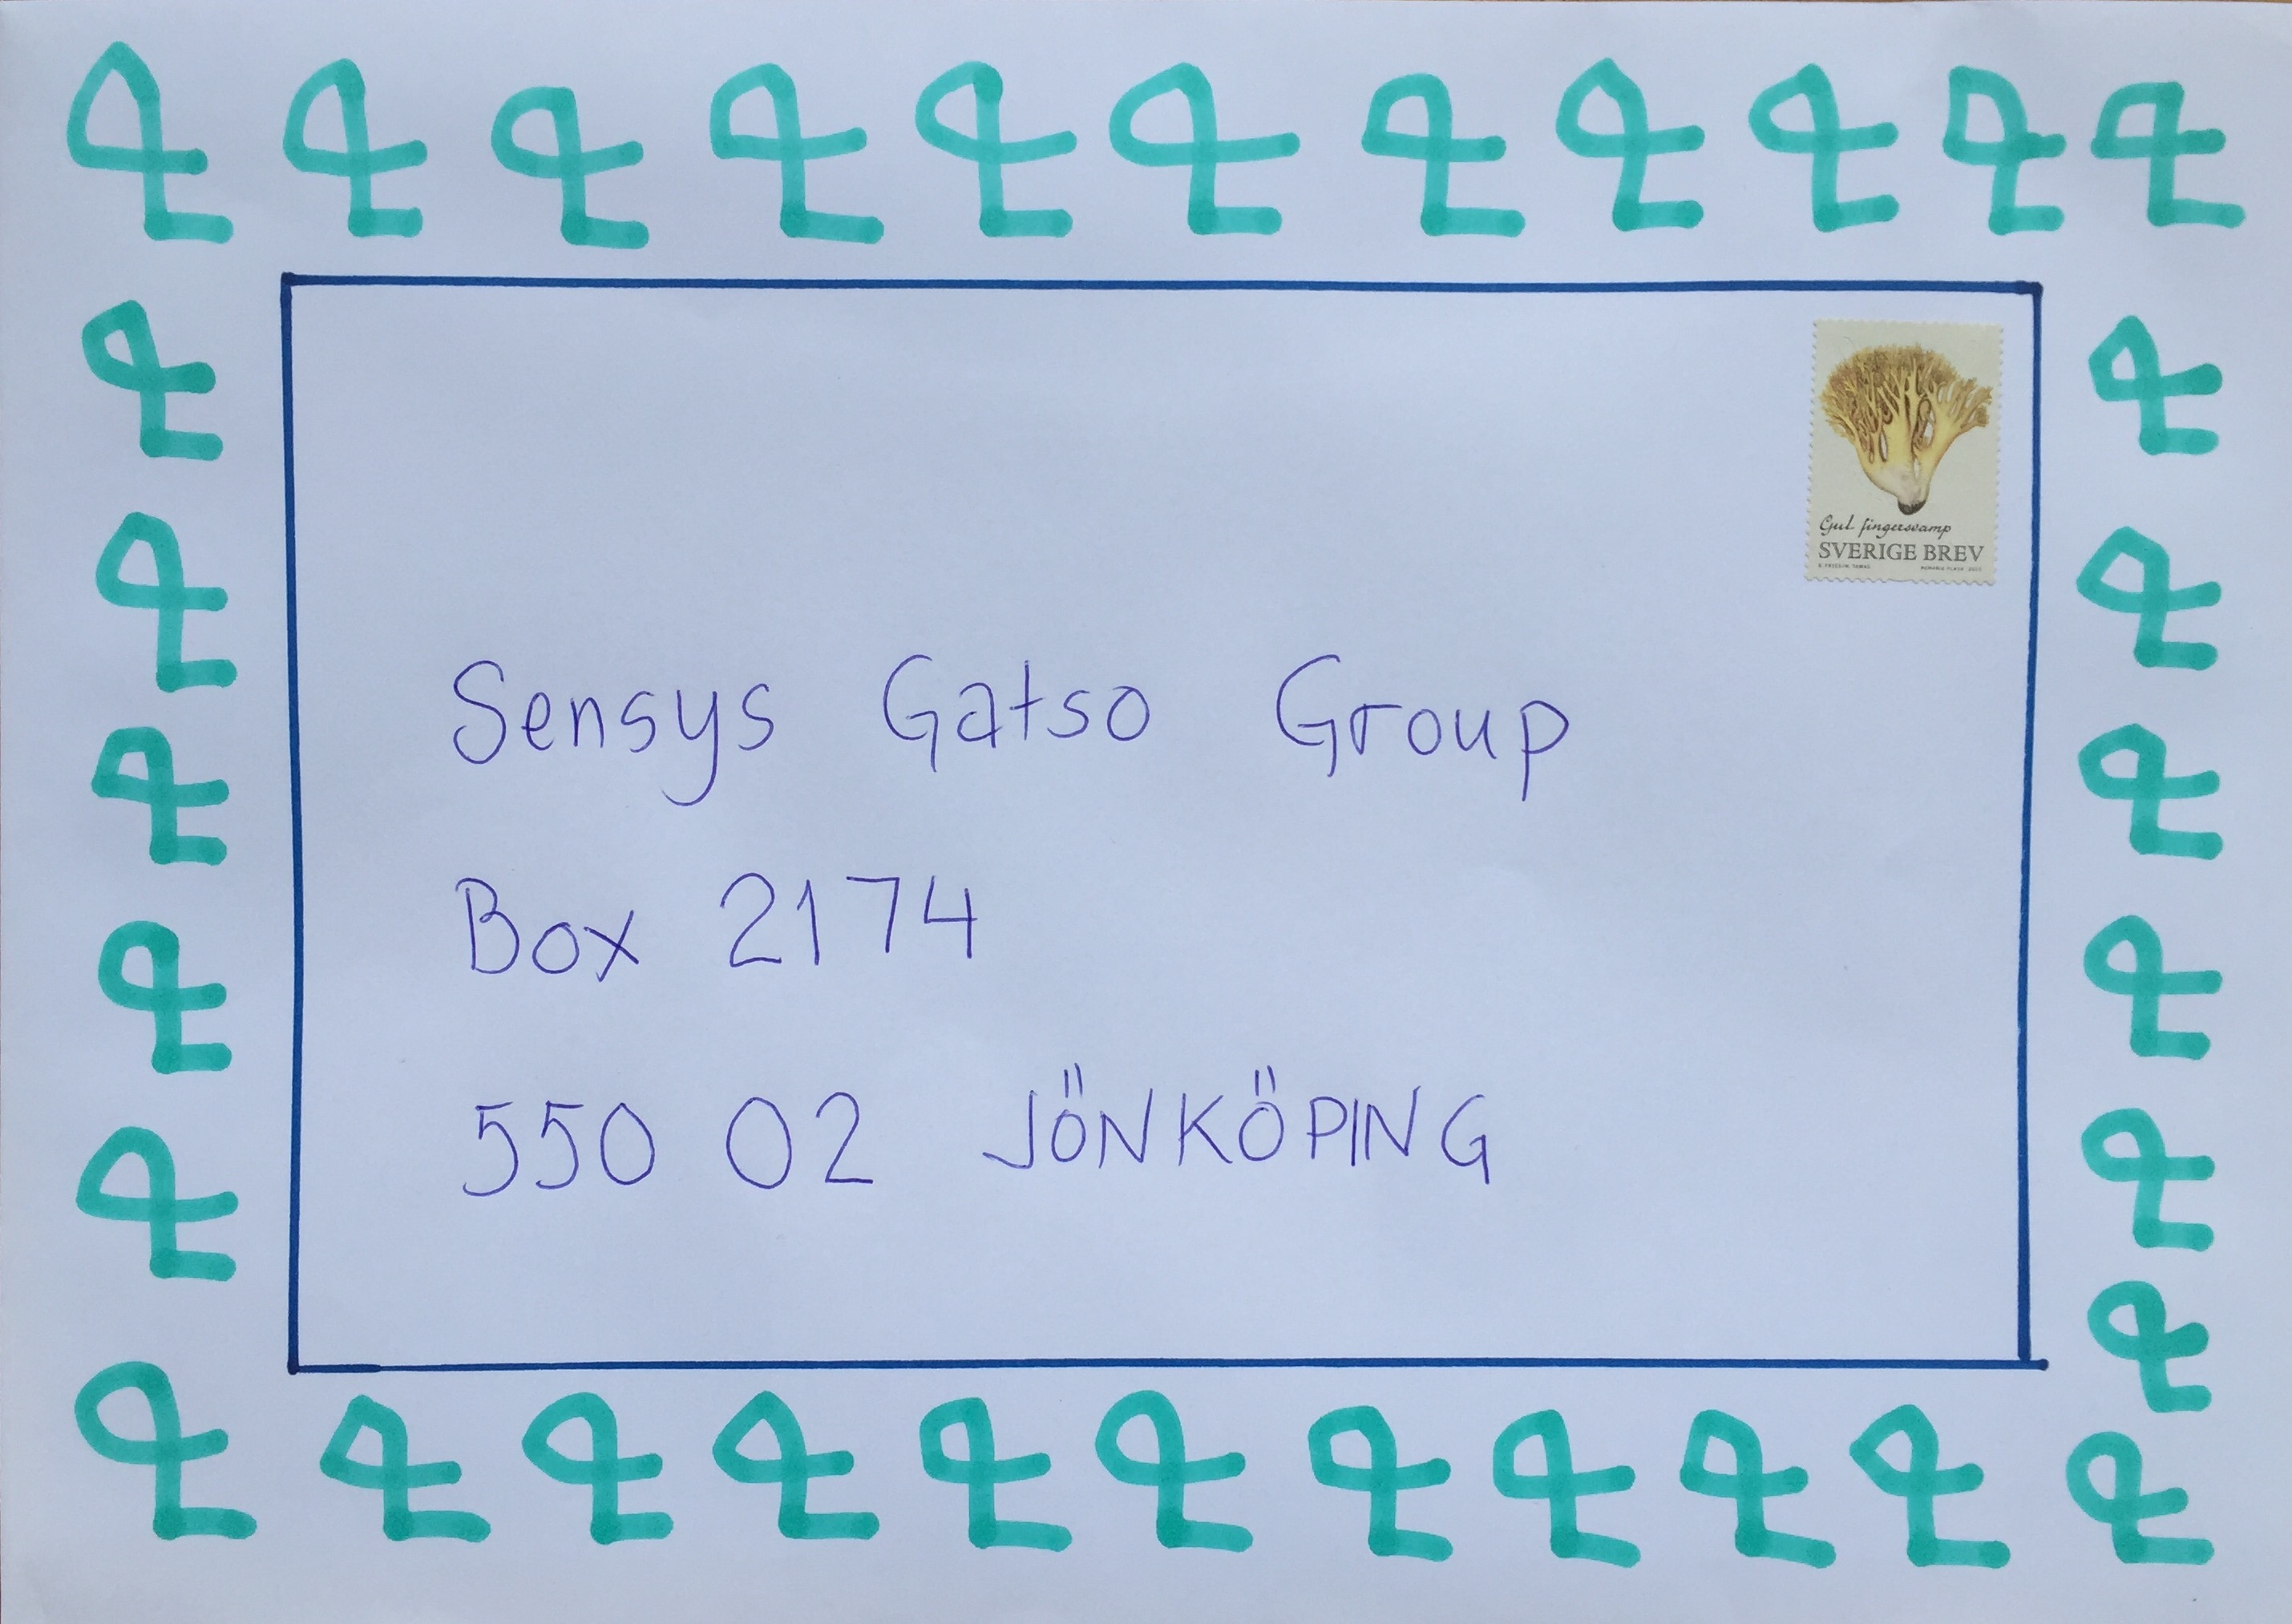 Gul fingersvamp
SVERIGE BREV
Sensys Gatso Group
Box 2174
550 02 JÖNKÖPING